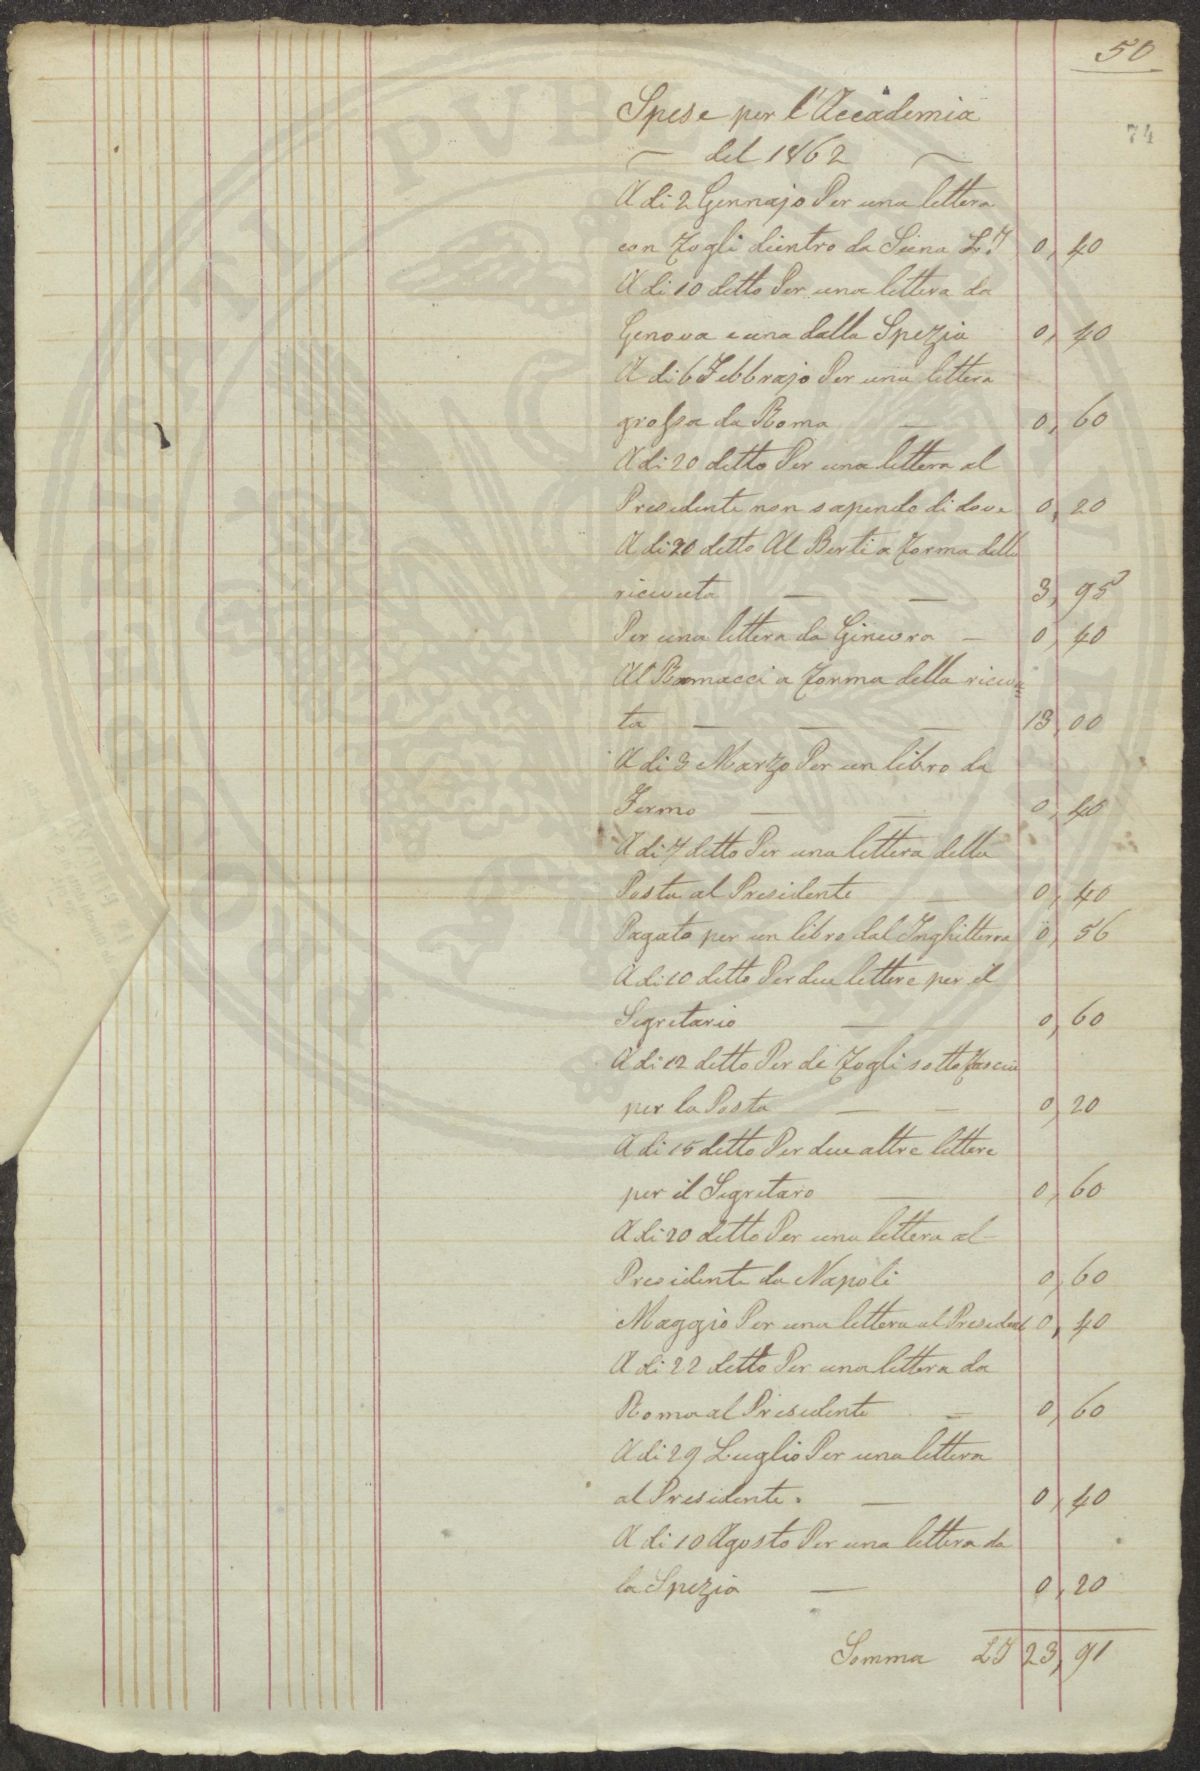 50
74
Spese per l'Accademia
del 1862
A di 2 Gennajo Per una lettera
con fogli dientro da Siena L.I 0, 40
A di 10 detto Per una lettera da
Genova e una dalla Spezia 0, 40
A di 6 Febbrajo Per una lettera
grossa da Roma — 0, 60
A di 20 detto Per una lettera al
Presidente non sapendo di dove 0, 20
A di 20 detto Al Berti a forma della
ricevuta — — 3, 95
Per una lettera da Ginevra — 0, 40
Al Ramacci a forma della ricevu=
ta — — — 13, 00
A di 3 Marzo Per un libro da
Fermo — — 0, 40
A di 7 detto Per una lettera della
Posta al Presidente — 0, 40
Pagato per un libro dal Inghilterra 0, 56
A di 10 detto Per due lettere per il
Segretario — 0, 60
A di 12 detto Per de fogli sotto fascia
per la Posta — — 0, 20
A di 15 detto Per due altre lettere
per il Segretaro — 0, 60
A di 20 detto Per una lettera al
Presidente da Napoli 0, 60
Maggio Per una lettera al President 0, 40
A di 22 detto Per una lettera da
Roma al Presidente — 0, 60
A di 29 Luglio Per una lettera
al Presidente. — 0, 40
A di 10 Agosto Per una lettera da
la Spezia — 0, 20
Somma LI 23, 91